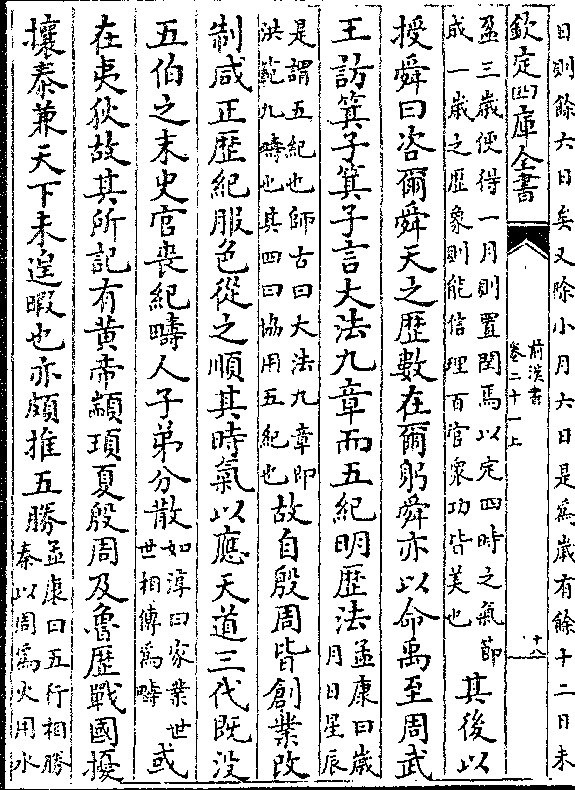 日則餘六日矣又除小月六日是為歳有餘十二日未
欽定四庫全書
前漢書
卷二十一上
十八
盈三歳便得一月則置閏焉以定四時之氣節
成一歳之歷象則能信理百官衆功皆美也
其後以
授舜曰咨爾舜天之歷數在爾躬舜亦以命禹至周武
王訪箕子箕子言大法九章而五紀明歷法
孟康曰歳
月日星辰
是謂五紀也師古曰大法九章即
洪範九疇也其四曰協用五紀也
故自殷周皆創業改
制咸正歷紀服色從之順其時氣以應天道三代既没
五伯之末史官喪紀疇人子弟分散
如淳曰家業世
世相傳為疇
或
在夷狄故其所記有黄帝顓頊夏殷周及魯歷戰國擾
攘秦兼天下未遑暇也亦頗推五勝
孟康曰五行相勝
秦以周為火用水